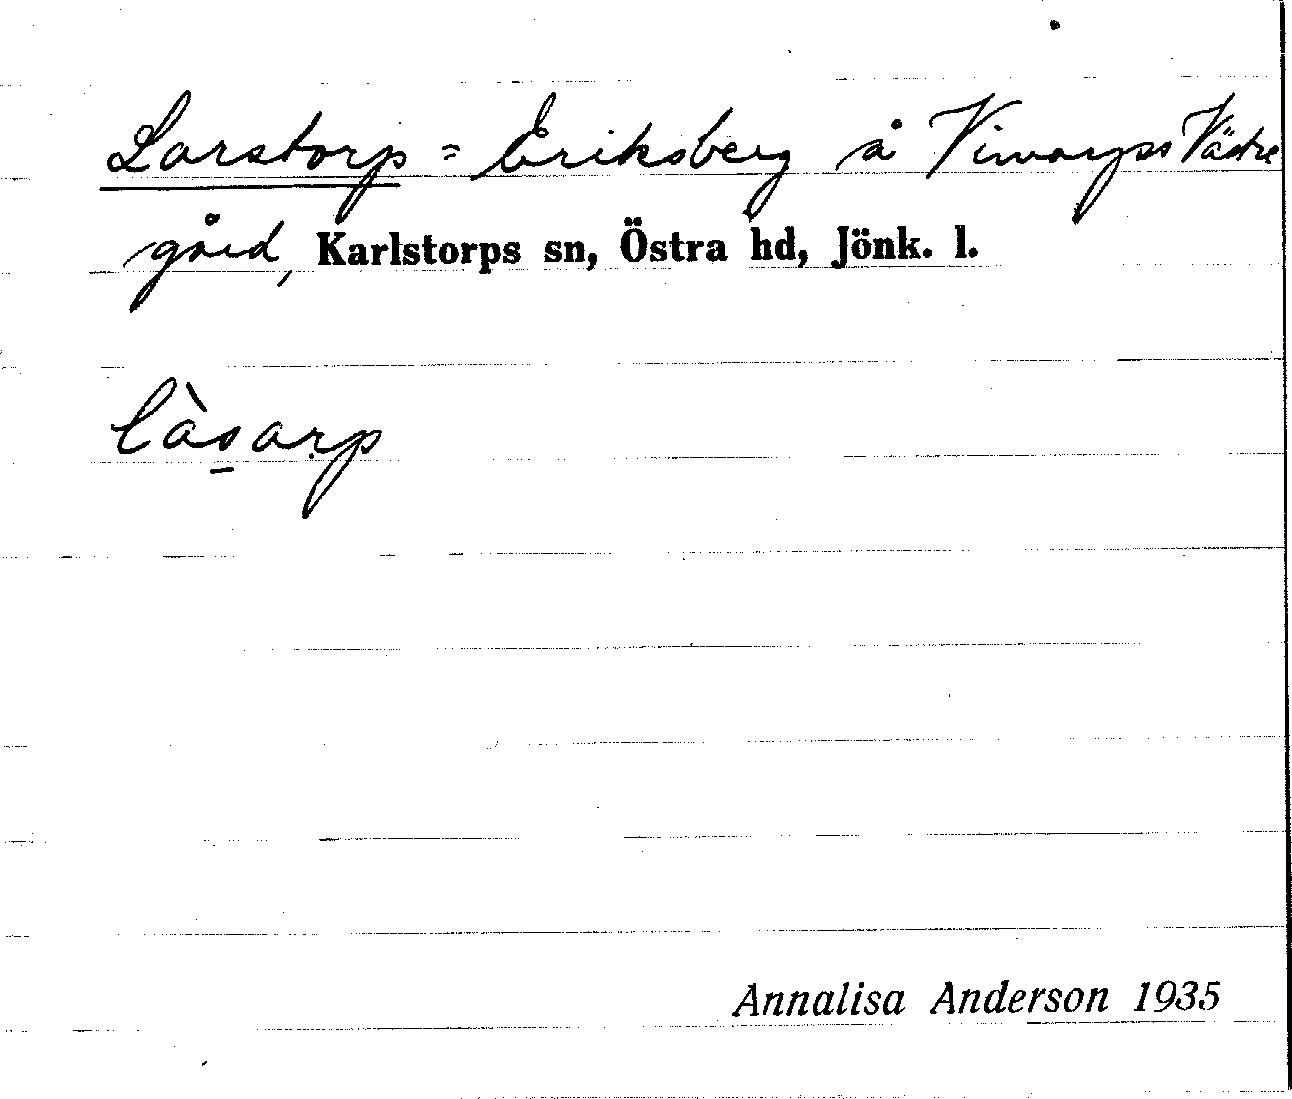 Larstorp = Eriksberg å Vimarps Västre
gård, Karlstorps sn, Östra hd, Jönk. l.
làs̠arp
Annalisa Anderson 1935